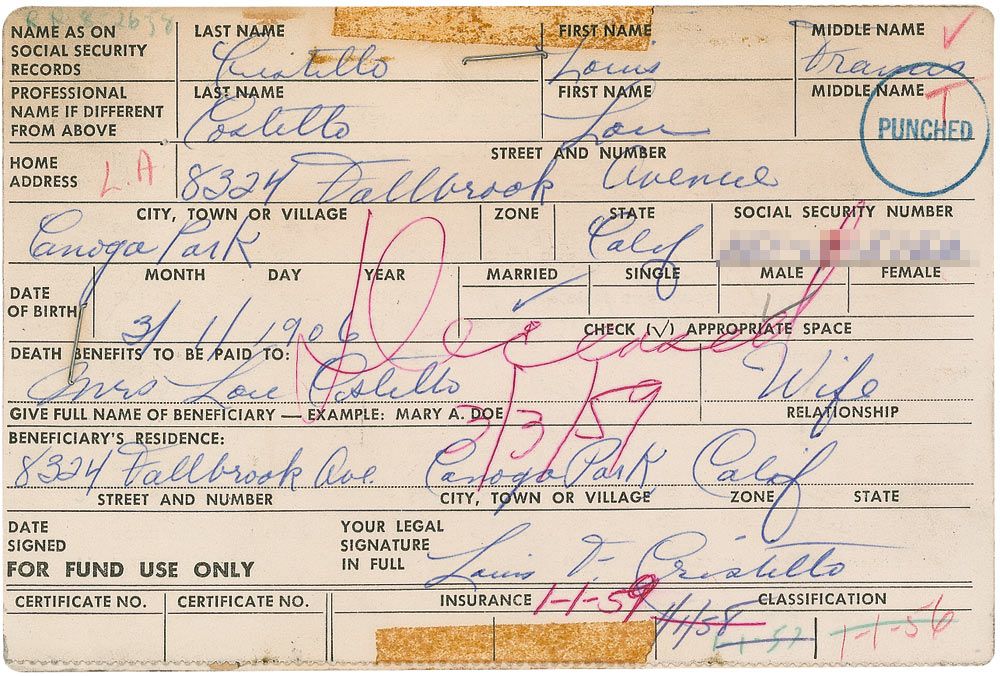 NAME AS ON SOCIAL SECURITY RECORDS
LAST NAME FIRST NAME MIDDLE NAME
Cristillo Louis Francis
PROFESSIONAL NAME IF DIFFERENT FROM ABOVE
LAST NAME FIRST NAME MIDDLE NAME
Costello Lou T
PUNCHED
HOME ADDRESS L.A
STREET AND NUMBER
8324 Fallbrook Avenue
CITY, TOWN OR VILLAGE ZONE STATE SOCIAL SECURITY NUMBER
Canoga Park Calif
DATE OF BIRTH
MONTH DAY YEAR MARRIED SINGLE MALE FEMALE
3/ 1/ 1906 ✓ ✓
CHECK (√) APPROPRIATE SPACE
Deceased
3/3/59
DEATH BENEFITS TO BE PAID TO:
Mrs Lou Costello Wife
GIVE FULL NAME OF BENEFICIARY — EXAMPLE: MARY A. DOE RELATIONSHIP
BENEFICIARY'S RESIDENCE:
8324 Fallbrook Ave. Canoga Park Calif
STREET AND NUMBER CITY, TOWN OR VILLAGE ZONE STATE
DATE SIGNED
YOUR LEGAL SIGNATURE IN FULL
Louis F. Cristillo
FOR FUND USE ONLY
CERTIFICATE NO. CERTIFICATE NO. INSURANCE 1-1-59 CLASSIFICATION
1/1/58 1-1-57 1-1-56